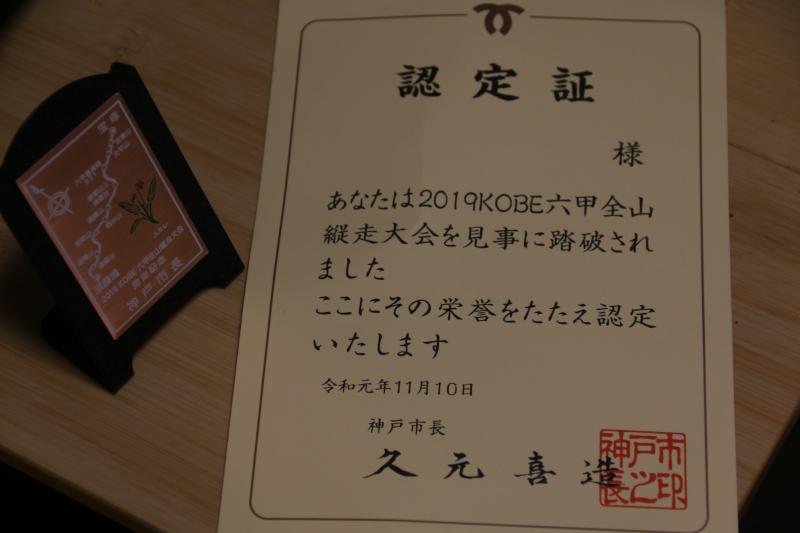 認定証
様
あなたは2019KOBE六甲全山
縦走大会を見事に踏破され
ました
ここにその栄誉をたたえ認定
いたします
令和元年11月10日
神戸市長
久元喜造
神戸市
長之印
宝塚
須磨浦
2019 KOBE 六甲全山縦走大会
神戸市長